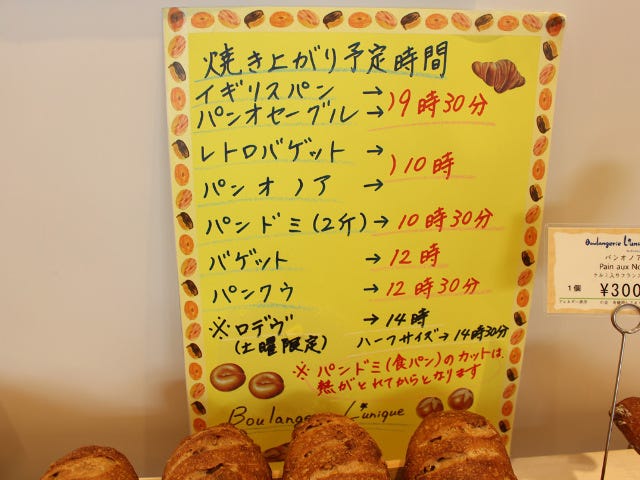 焼き上がり予定時間
イギリスパン →
パンオセーグル→ )9時30分
レトロバゲット →
パンオノア → )10時
パンドミ(2斤)→ 10時30分
バゲット → 12時
パンクウ → 12時30分
※ロデヴ → 14時
(土曜限定) ハーフサイズ→14時30分
※パンドミ(食パン)のカットは、
熱がとれてからとなります
Boulangerie L'unique
Boulangerie L'uniqu
パンオノア
Pain aux No
クルミ入りフランス
1個 ¥300